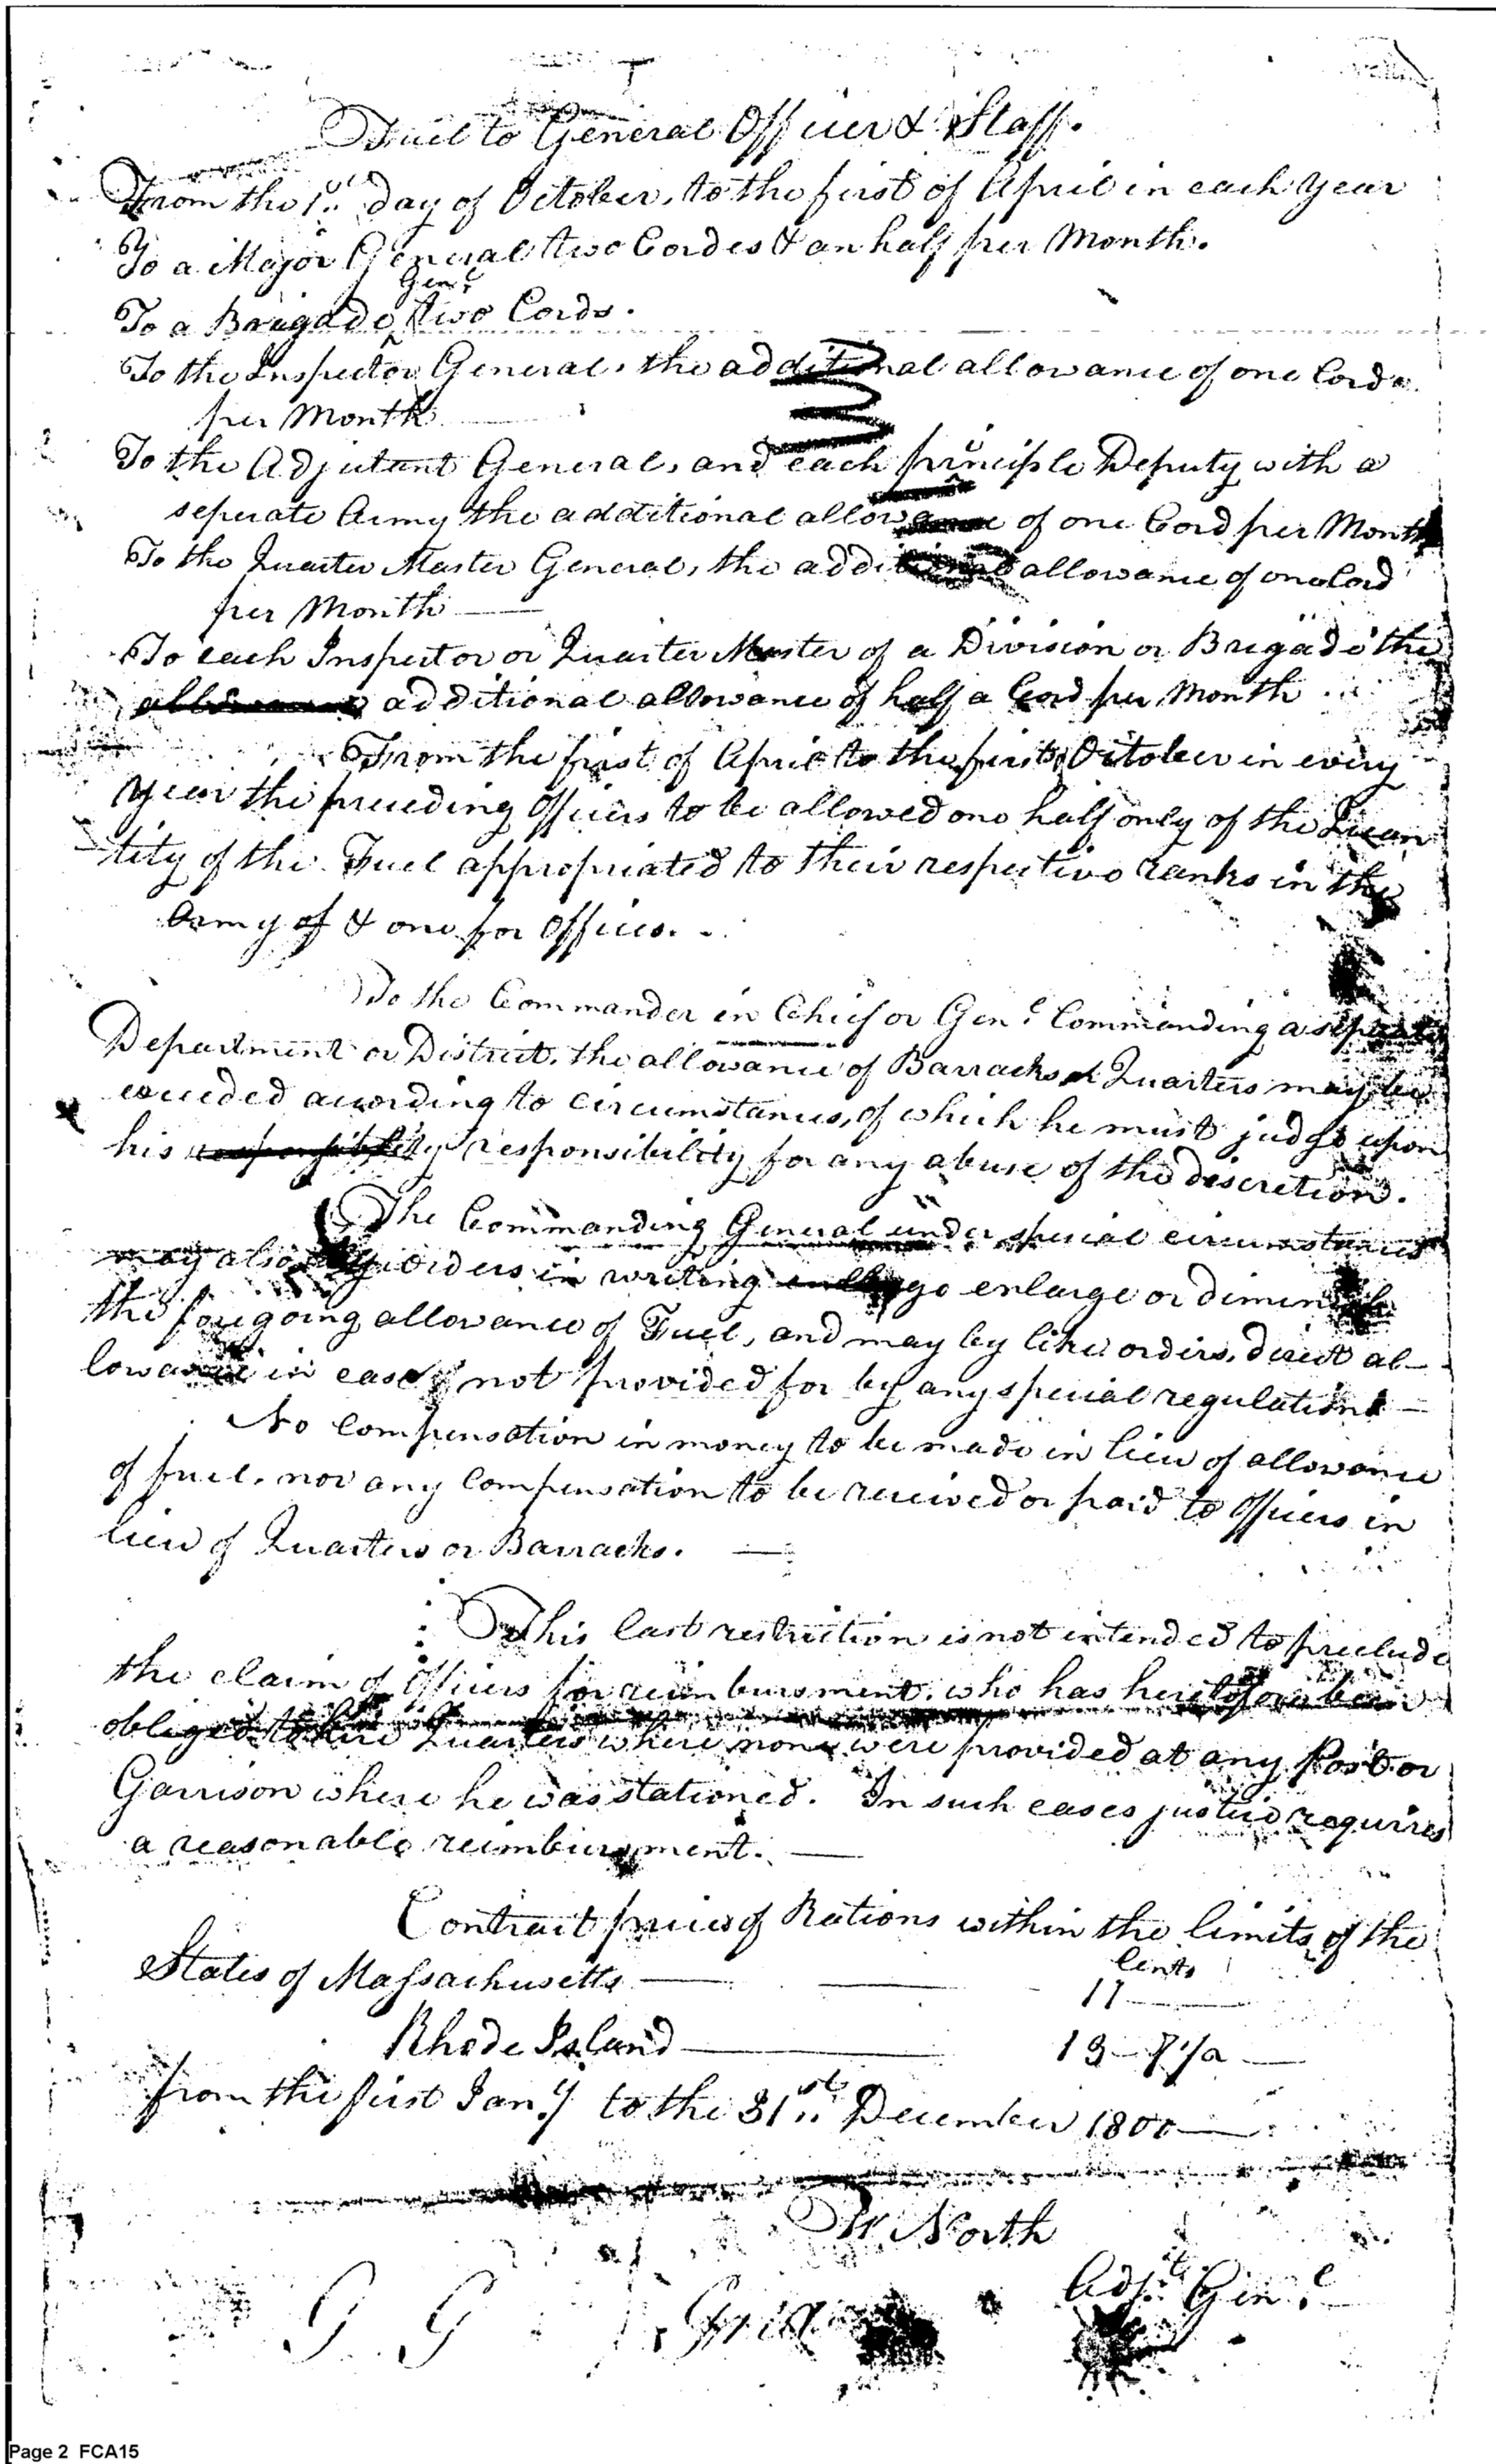 Fuel to General Officer & Staff.
From the 1st day of October, to the first of April in each year
To a Major General two Cordes & an half per Month.
Genl
To a Brigade two Cords.
To the Inspector General, the additional allowance of one Cord
per Month
To the Adjutant General, and each principle Deputy with a
seperate Army the additional allowance of one Cord per Month
To the Quarter Master General, the additional allowance of one Cord
per Month
To each Inspector or Quarter Master of a Division or Brigade the
allowance additional allowance of half a Cord per Month
From the first of April to the first October in every
year the preceding Officers to be allowed one half only of the Quan
tity of the Fuel appropriated to their respective ranks in the
Army of & one for Offices.
To the Commander in Chief or Genl Commanding a separate
Department or District, the allowance of Barracks or Quarters may be
exceeded according to circumstances, of which he must judge upon
his responsibility responsibility for any abuse of the discretion.
The Commanding General under special circumstances
may also by orders in writing enlarge or diminish
the foregoing allowance of Fuel, and may by like orders, direct al-
lowance in cases not provided for by any special regulations
No Compensation in money to be made in lieu of allowance
of fuel, nor any Compensation to be received or paid to Officers in
lieu of Quarters or Barracks.
This last restriction is not intended to preclude
the claim of Officers for reimbursment, who has heretofore been
obliged to hire Quarters where none were provided at any Post or
Garrison where he was stationed. In such cases justice requires
a reasonable reimbursment.
Contract prices of Rations within the limits of the
Cents
States of Massachusetts 17
Rhode Island 13
from the first Jany to the 31st December 1800
W. North
Adjt Genl
G G
Page 2 FCA15